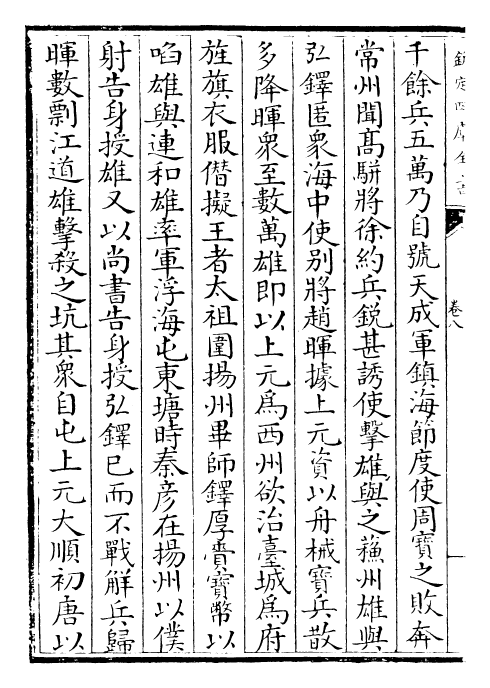 欽定四庫全書
卷八
千餘兵五萬乃自號天成軍鎮海節度使周寶之敗奔
常州聞髙駢將徐約兵鋭甚誘使擊雄與之蘓州雄與
弘鐸匿衆海中使别將趙暉據上元資以舟械寶兵散
多降暉衆至數萬雄即以上元為西州欲治臺城為府
旌旗衣服僭擬王者太祖圍揚州畢師鐸厚賫寶幣以
啗雄與連和雄率軍浮海屯東塘時秦彦在揚州以僕
射告身授雄又以尚書告身授弘鐸已而不戰解兵歸
暉數剽江道雄擊殺之坑其衆自屯上元大順初唐以